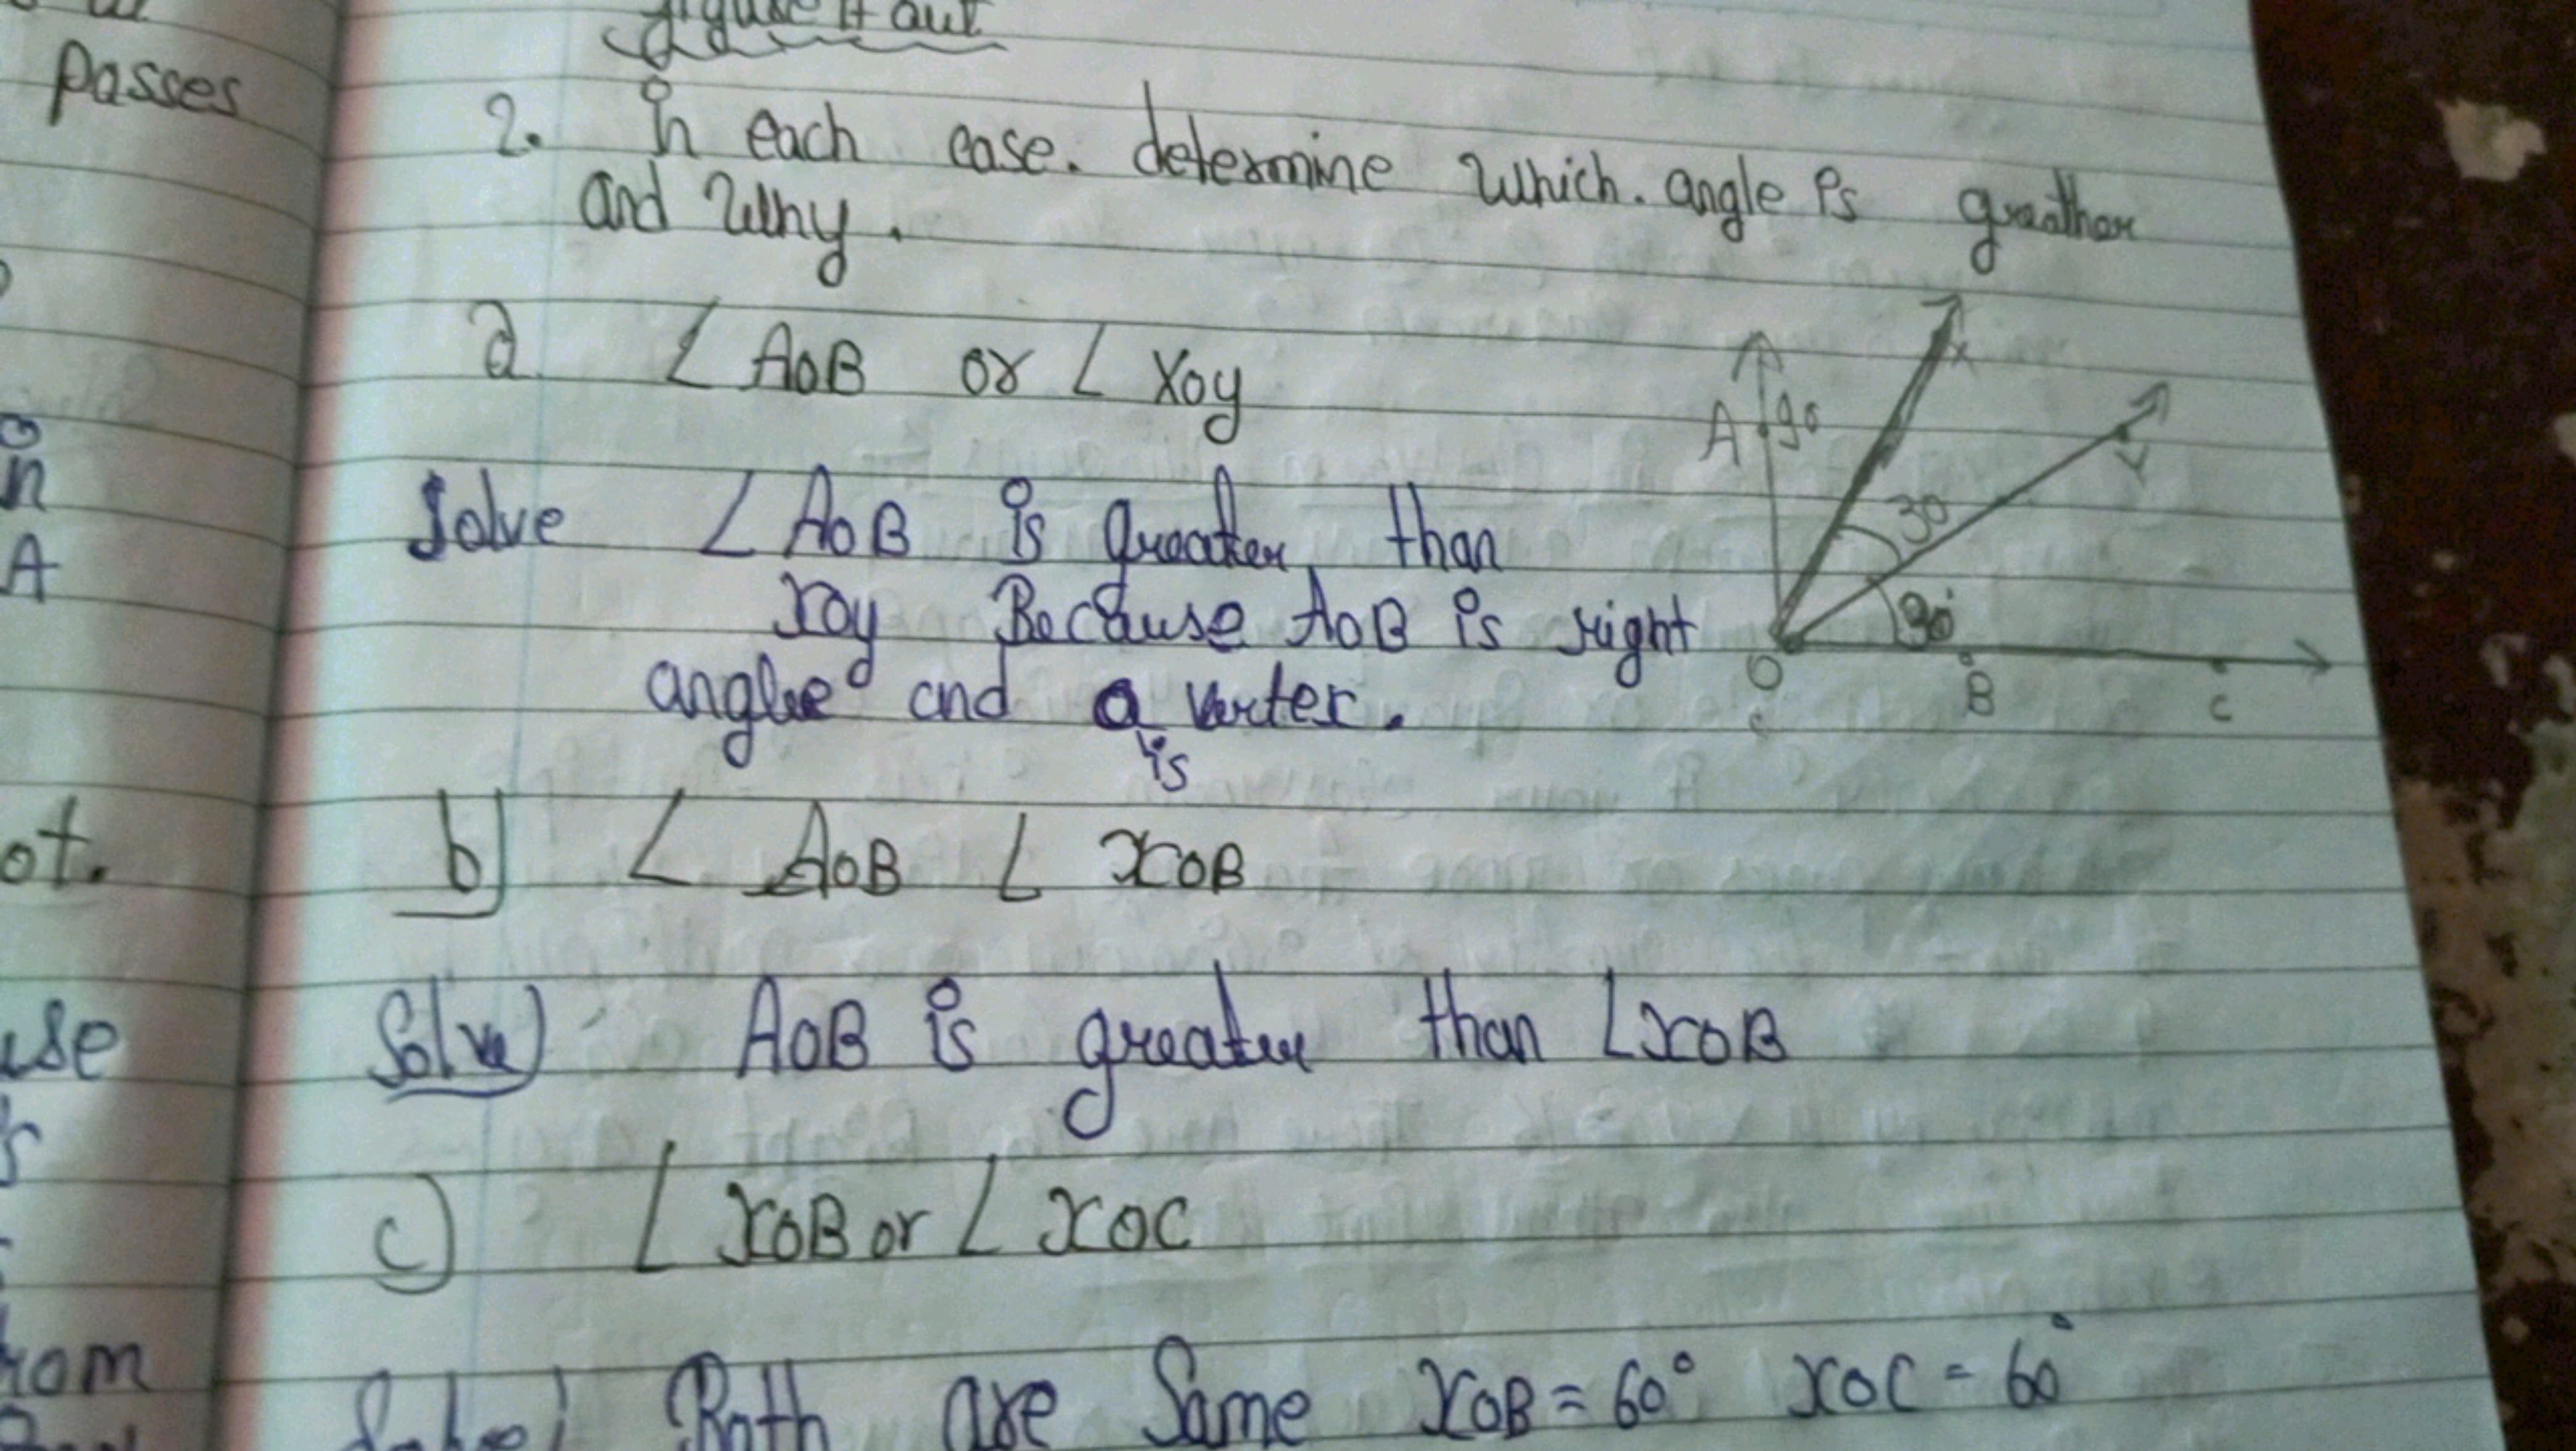 figure it out
passes
2. In each case. determine which. angle is greather
and why.
a ∠ AOB or ∠ XOY
Solve ∠ AOB is greater than
XOY Because AOB is right
angle and O is vertex.
A 90
X
Y
30
30°
O
B
C
b) ∠ AOB ∠ XOB
Solve) AOB is greater than ∠XOB
c) ∠ XOB or ∠ XOC
Solve) Both are Same XOB = 60° XOC = 60°
n
A
ot.
use
rom